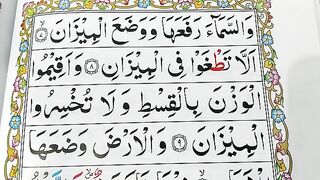 وَالسَّمَآءَ رَفَعَهَا وَوَضَعَ الْمِيْزَانَ ۙ﴿۷﴾
اَلَّا تَطْغَوْا فِى الْمِيْزَانِ ﴿۸﴾ وَاَقِيْمُوا
الْوَزْنَ بِالْقِسْطِ وَلَا تُخْسِرُوا
الْمِيْزَانَ ﴿۹﴾ وَالْاَرْضَ وَضَعَهَا